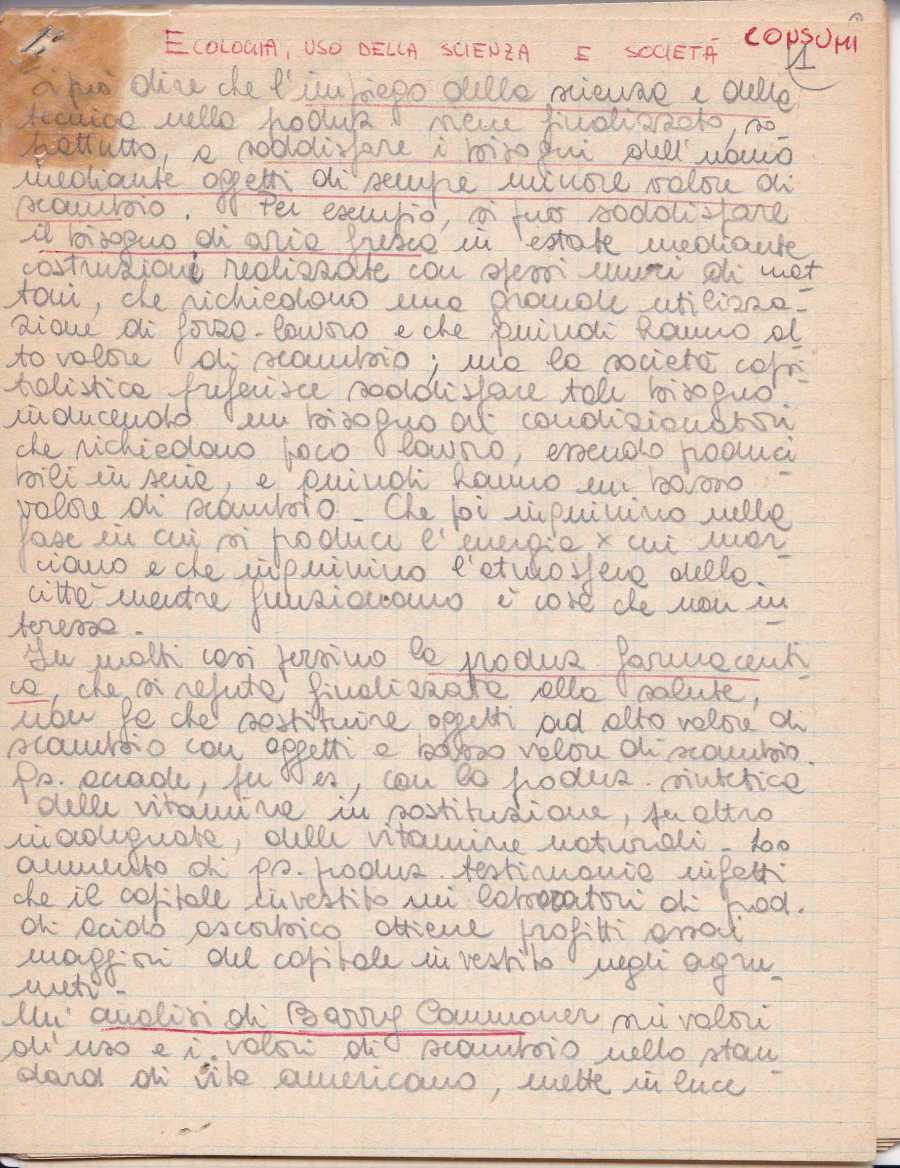 CONSUMI
ECOLOGIA, USO DELLA SCIENZA E SOCIETÀ
1
Si può dire che l'impiego della scienza e della
tecnica nella produz viene finalizzato, so-
prattutto, a soddisfare i bisogni dell'uomo
mediante oggetti di sempre minore valore di
scambio. Per esempio, si può soddisfare
il bisogno di aria fresca in estate mediante
costruzioni realizzate con spessi muri di mat
toni, che richiedono una grande utilizza-
zione di forza-lavoro e che quindi hanno al
to valore di scambio; ma la società capi
talistica preferisce soddisfare tale bisogno
inducendo un bisogno di condizionatori
che richiedono poco lavoro, essendo produci
bili in serie, e quindi hanno un basso
valore di scambio - Che poi inquinino nella
fase in cui si produce l'energia x cui mar
ciano e che inquinino l'atmosfera della
città mentre funzionano è cosa che non in
teressa -
In molti casi persino la produz. farmaceuti
ca, che si reputa finalizzata alla salute,
non fa che sostituire oggetti ad alto valore di
scambio con oggetti a basso valore di scambio.
Qs. accade, per es, con la produz. sintetica
delle vitamine in sostituzione, per altro
inadeguata, delle vitamine naturali -
aumento di qs. produz. testimonia infatti
che il capitale investito nei laboratori di prod.
di acido ascorbico ottiene profitti assai
maggiori del capitale investito negli agru-
meti -
Un'analisi di Barry Commoner sui valori
d'uso e i valori di scambio nello stan
dard di vita americano, mette in luce